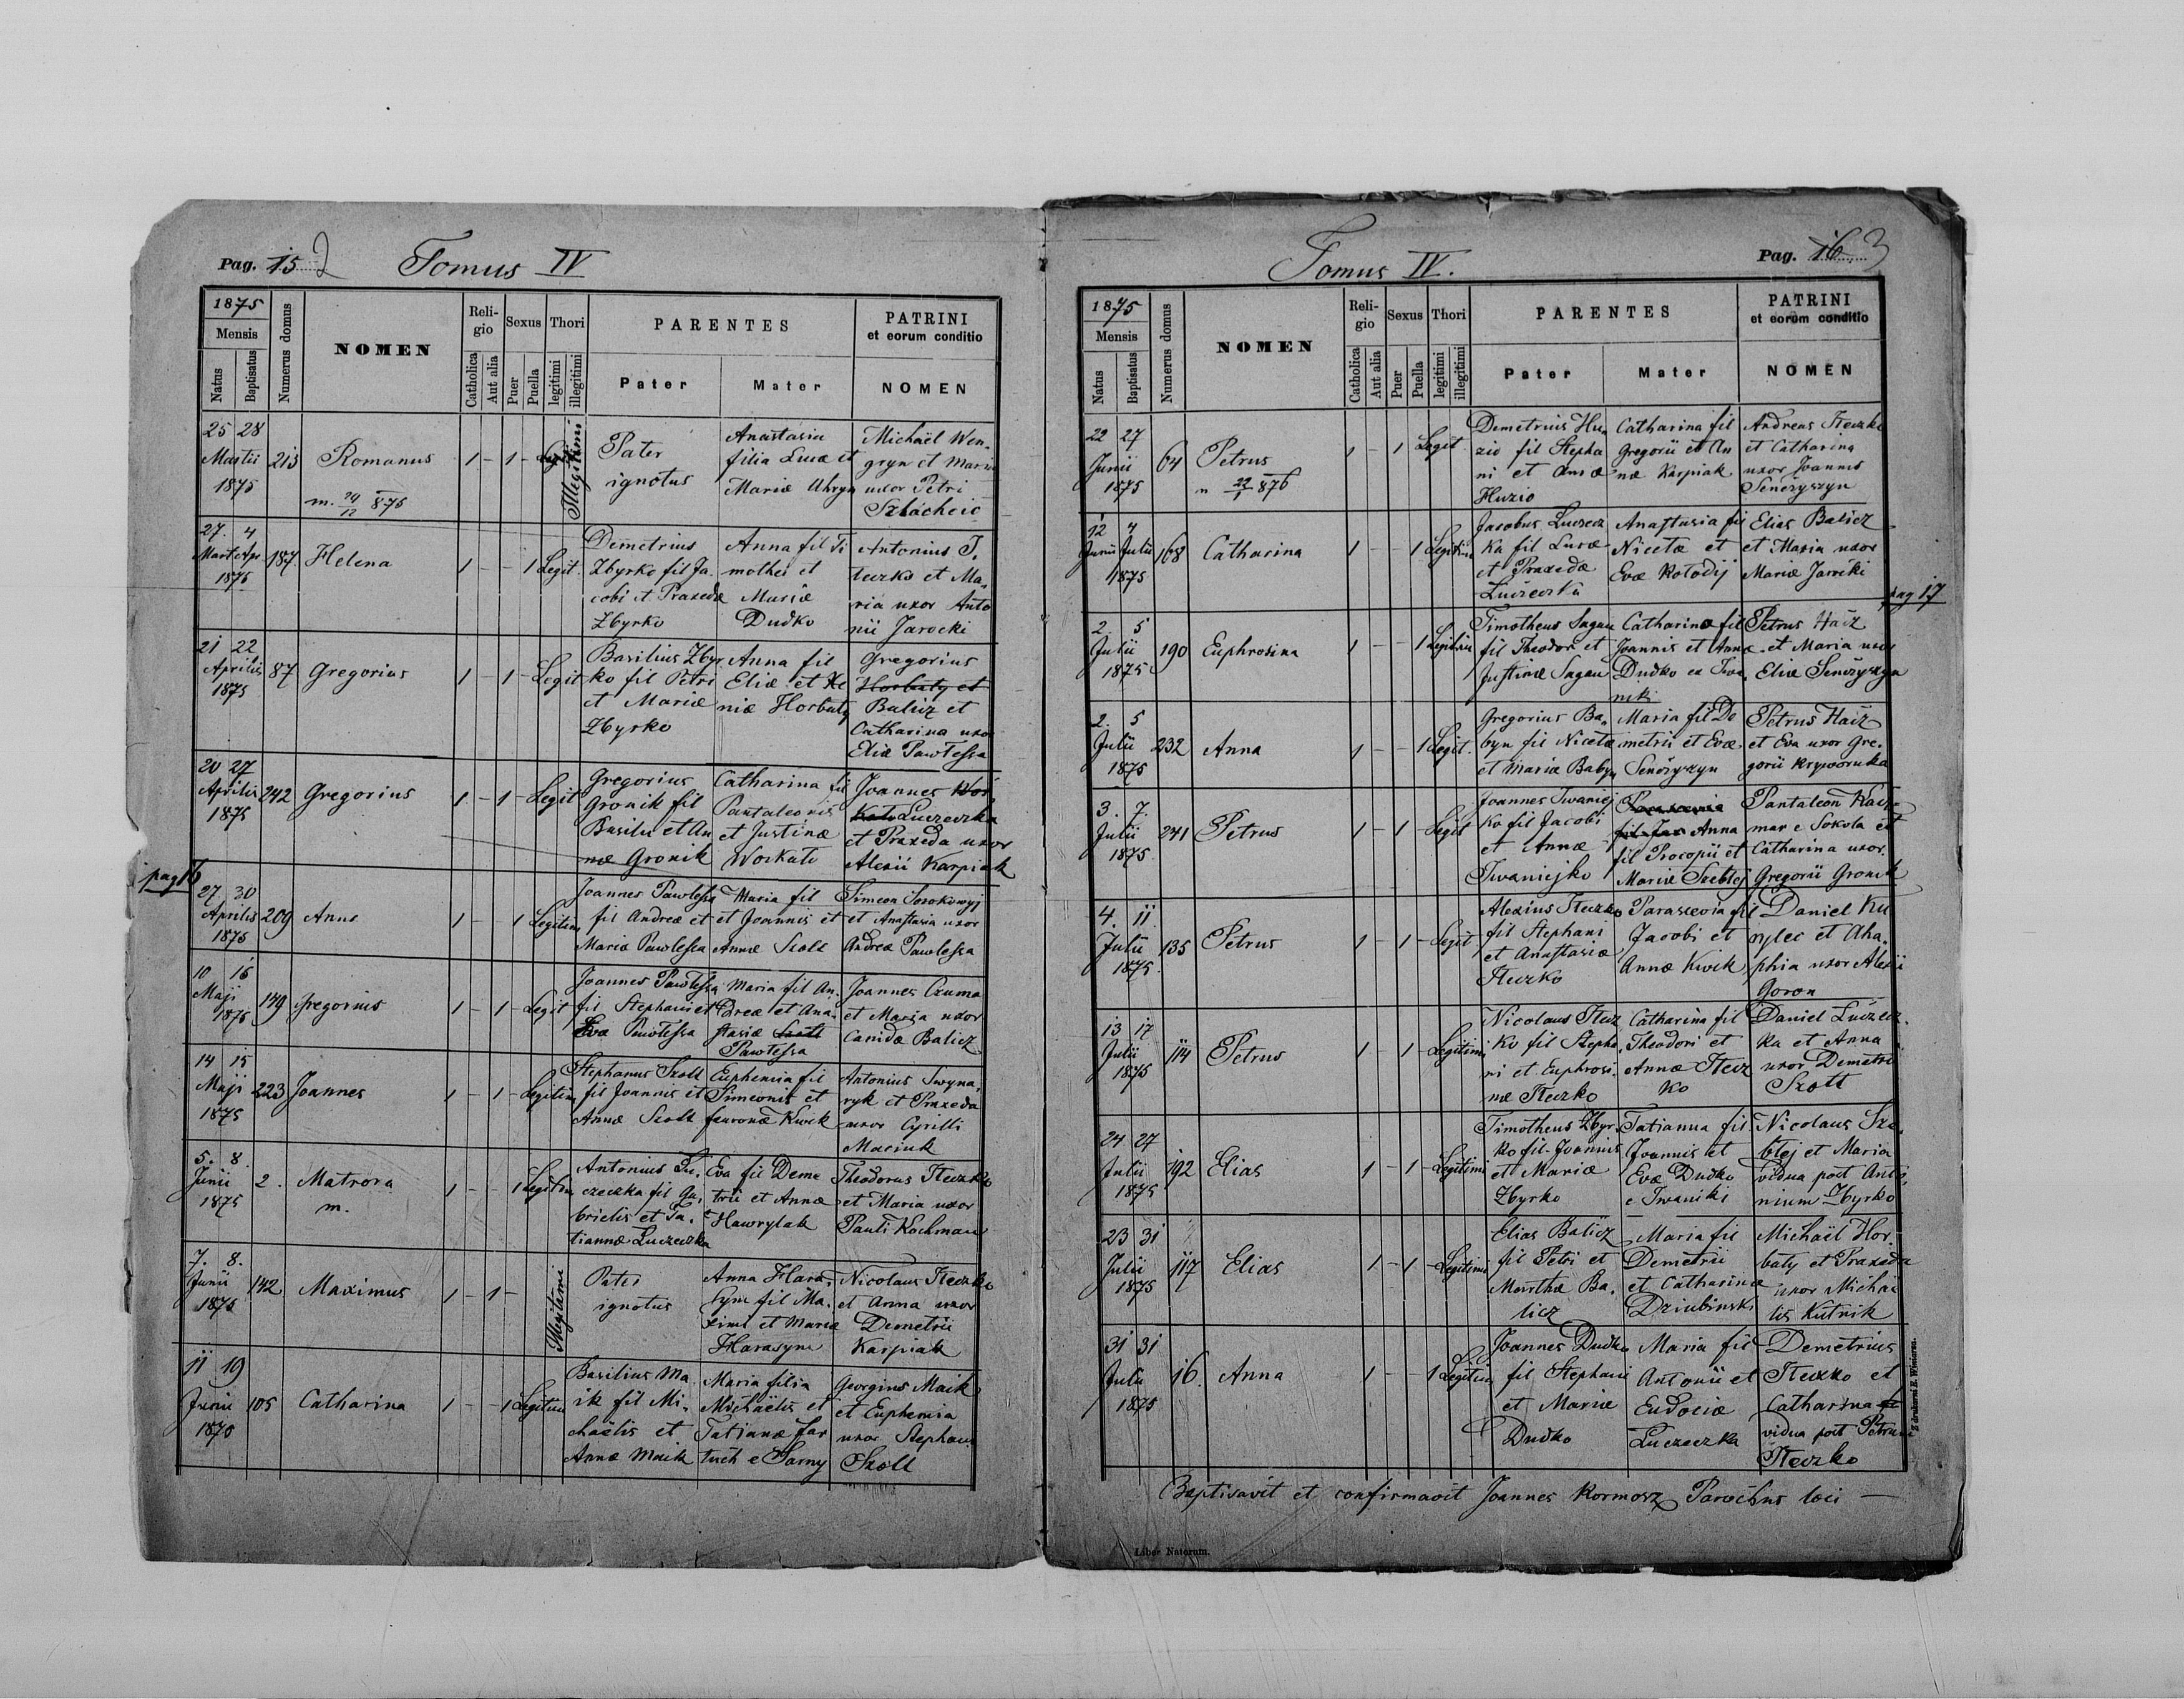 Pag. 15 2 Tomus IV
1875
Mensis
Natus
Baptisatus
Numerus domus
NOMEN
Reli-
gio
Catholica
Aut alia
Sexus
Puer
Puella
Thori
legitimi
illegitimi
PARENTES
Pater
Mater
PATRINI
et eorum conditio
NOMEN
25 28
Martii
1875
213
Romanus
m. 875
1 - 1 -
Illegitimi
Pater
ignotus
Anastasia
filia Lucæ et
Mariæ Uhryn
Michaël Wen-
gryn et Maria
uxor Petri
Szlacheic
27. 4
Mart Apr.
1875
187
Helena
1 - - 1 Legit.
Demetrius
Zbyrko fil Ja-
cobi et Praxedæ
Zbyrko
Anna fil Ti
mothei et
Mariæ
Dudko
Antonius
teczko et Ma-
ria uxor Anto
nii Jarocki
21 22
Aprilis
1875
87
Gregorius
1 - 1 - Legit
Basilius Zbyr
ko fil Petri
et Mariæ
Zbyrko
Anna fil
Eliæ et Xe
niæ Horbaty
Gregorius
Horbaty et
Balicz et
Catharina uxor
Eliæ Pawlessa
20 27
Aprilis
1875
242
Gregorius
1 - 1 - Legit
Gregorius
Gronik fil
Basilii et An
næ Gronik
Catharina fil
Pantaleonis
et Justinæ
Workato
Joannes Wor
Kato Luczeczka
et Praxeda uxor
Alexii Karpiak
pag 16
27 30
Aprilis
1875
209
Anna
1 - - 1 Legitim
Joannes Pawlessa
fil Andreæ et
Mariæ Pawlessa
Maria fil
et Joannis et
Annæ Szoll
Simeon Sorokowyj
et Anastasia uxor
Andreæ Pawlessa
10 16
Maji
1875
149
Gregorius
1 - 1 - Legit
Joannes Pawlessa
fil Stephani et
Evæ Pawlessa
Maria fil An-
dreæ et Ana-
stasiæ Szoll
Pawlessa
Joannes Czuma
et Maria uxor
Canidæ Balicz
14 15
Maji
1875
223
Joannes
1 - 1 - Legitim
Stephanus Szoll
fil Joannis et
Annæ Szoll
Euphemia fil
Simeonis et
Fauronæ Kwik
Antonius Swyna-
ryk et Praxeda
uxor Cyrilli
Maciuk
5. 8.
Junii
1875
2.
Matrona
m.
1 - - 1 Legitim
Antonius Lu-
czeczka fil Ga-
brielis et Ta-
tiannæ Luczeczka
Eva fil Deme
trii et Annæ
Hawrylak
Theodorus Steczko
et Maria uxor
Pauli Kochman
7. 8.
Junii
1875
142
Maximus
1 - 1 -
Illegitimi
Pater
ignotus
Anna Hara-
sym fil Ma-
ximi et Mariæ
Harasym
Nicolaus Steczko
et Anna uxor
Demetrii
Karpiak
11 19
Junii
1875
105
Catharina
1 - - 1 Legitim
Basilius Ma
ik fil Mi-
chaëlis et
Annæ Maik
Maria filia
Michaëlis et
Tatianæ Jar
tuch e Sarny
Georgius Maik
et Euphemia
uxor Stephani
Szoll
Tomus IV. Pag. 16 3
1875
Mensis
Natus
Baptisatus
Numerus domus
NOMEN
Reli-
gio
Catholica
Aut alia
Sexus
Puer
Puella
Thori
legitimi
illegitimi
PARENTES
Pater
Mater
PATRINI
et eorum conditio
NOMEN
22 27
Junii
1875
64
Petrus
876
1 - 1 Legit
Demetrius Hu-
zio fil Stepha
ni et Annæ
Huzio
Catharina fil
Gregorii et An
næ Karpiak
Andreas Steczko
et Catharina
uxor Joannis
Senczyszyn
12 4
Junii Julii
1875
168
Catharina
1 - - 1 Legitim
Jacobus Luczecz
ka fil Lucæ
et Praxedæ
Luczeczka
Anastasia fil
Nicetæ et
Evæ Kolodij
Elias Balicz
et Maria uxor
Mariæ Jarocki
pag 17
2. 5
Julii
1875
190
Euphrosina
1 - - 1 Legitim
Timotheus Sagan
fil Theodori et
Justinæ Sagan
Catharina fil
Joannis et Annæ
Dudko ex Iwa
niki
Petrus Haiz
et Maria uxor
Eliæ Senczyszyn
2. 5
Julii
1875
232
Anna
1 - - 1 Legit.
Gregorius Ba-
byn fil Nicetæ
et Mariæ Babyn
Maria fil De
metrii et Evæ
Senczyszyn
Petrus Haiz
et Eva uxor Gre-
gorii Kryworuka
3. 7.
Julii
1875
241
Petrus
1 - 1 - Legit
Joannes Iwaniej
ko fil Jacobi
et Annæ
Iwaniejko
Paraxevia
fil Jac Anna
fil Procopii et
Mariæ Szeblej
Pantaleon Kacz-
mar e Sokola et
Catharina uxor
Gregorii Gronik
4. 11
Julii
1875
135
Petrus
1 - 1 - Legit
Alexius Steczko
fil Stephani
et Anastasiæ
Steczko
Parascevia fil
Jacobi et
Annæ Kwik
Daniel Ku
rylec et Aha-
phia uxor Alexii
Goron
13 17
Julii
1875
114
Petrus
1 - 1 - Legitim
Nicolaus Stecz
ko fil Stepha-
ni et Euphrosi-
næ Steczko
Catharina fil
Theodori et
Annæ Stecz
ko
Daniel Luczecz-
ka et Anna
uxor Demetri
Szoll
24 27
Julii
1875
192
Elias
1 - 1 - Legitim
Timotheus Zbyr-
ko fil Joannis
et Mariæ
Zbyrko
Tatianna fil
Joannis et
Evæ Dudko
e Iwaniki
Nicolaus Sze-
blej et Maria
vidua post Anto-
nium Zbyrko
23 31
Julii
1875
117
Elias
1 - 1 - Legitim
Elias Balicz
fil Petri et
Marthæ Ba-
licz
Maria fil
Demetrii
et Catharinæ
Dziubinski
Michaël Hor-
baty et Praxeda
uxor Michaë
lis Kutnik
31 31
Julii
1875
16
Anna
1 - - 1 Legitim
Joannes Dudko
fil Stephani
et Mariæ
Dudko
Maria fil
Antonii et
Eudociæ
Luczeczka
Demetrius
Steczko et
Catharina et
vidua post Petrum
Steczko
Baptisavit et confirmavit Joannes Kormosz Parochus loci —
Liber Natorum.
Z drukarni E. Winiarza.